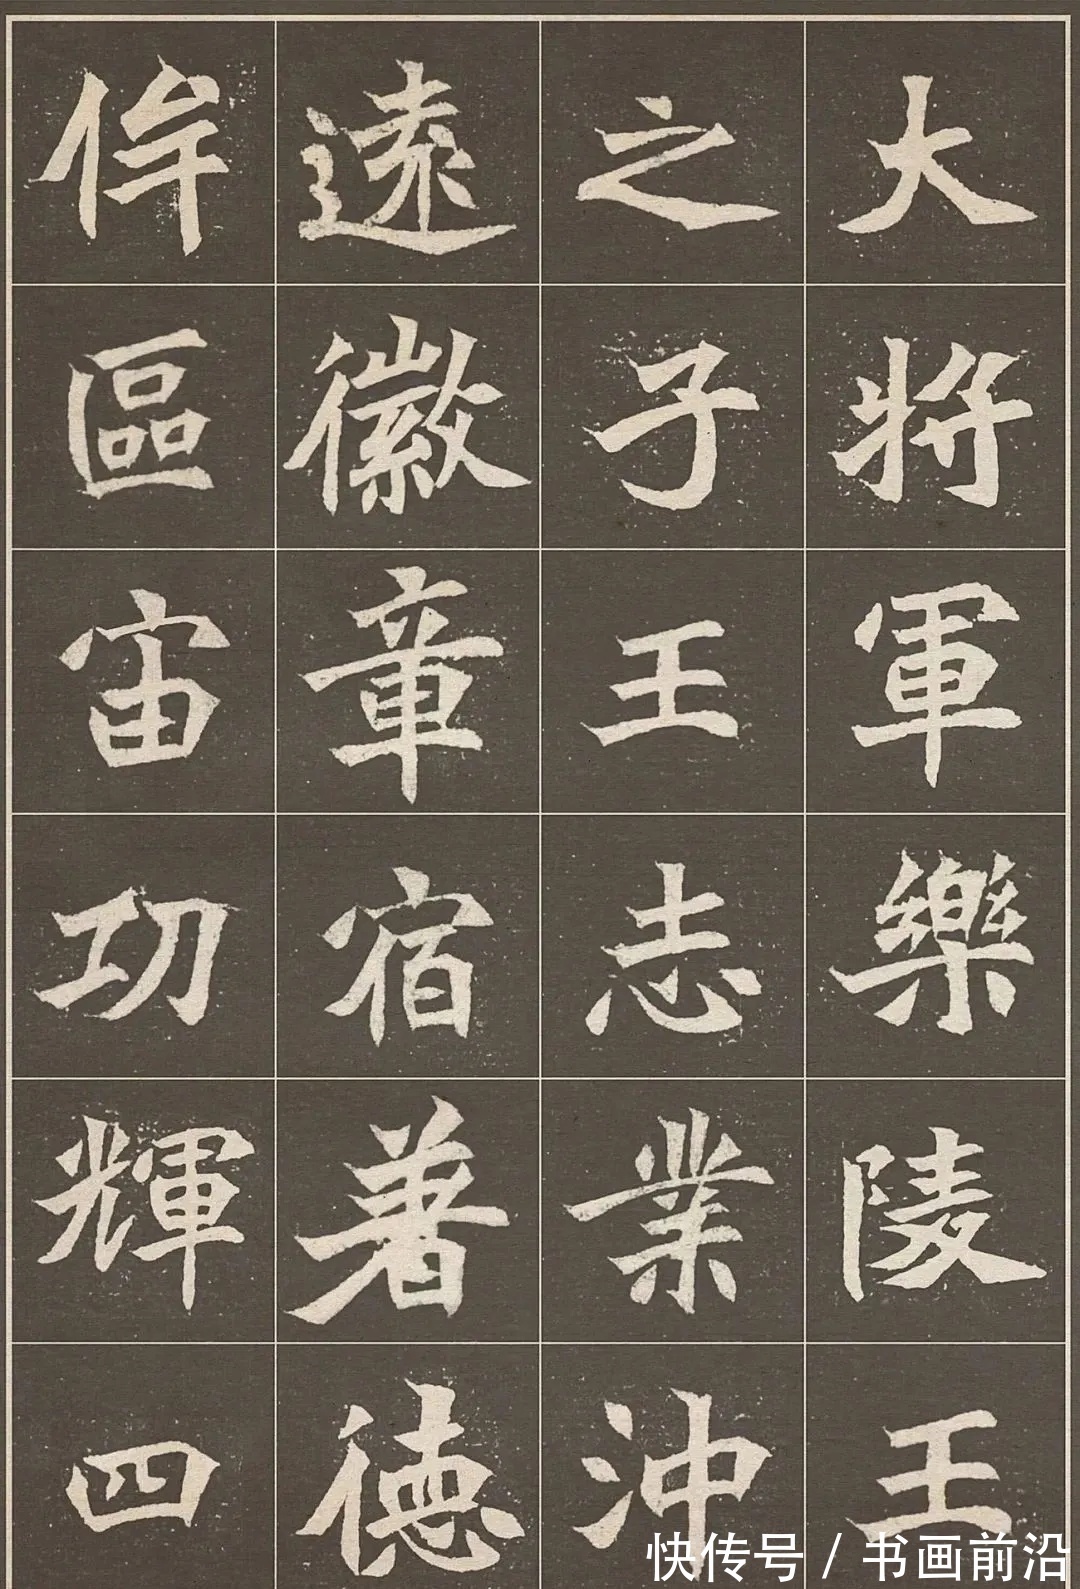 大將軍樂陵王
之子王志業沖
遠徽章宿著德
侔區宙功輝四
快传号 / 书画前沿